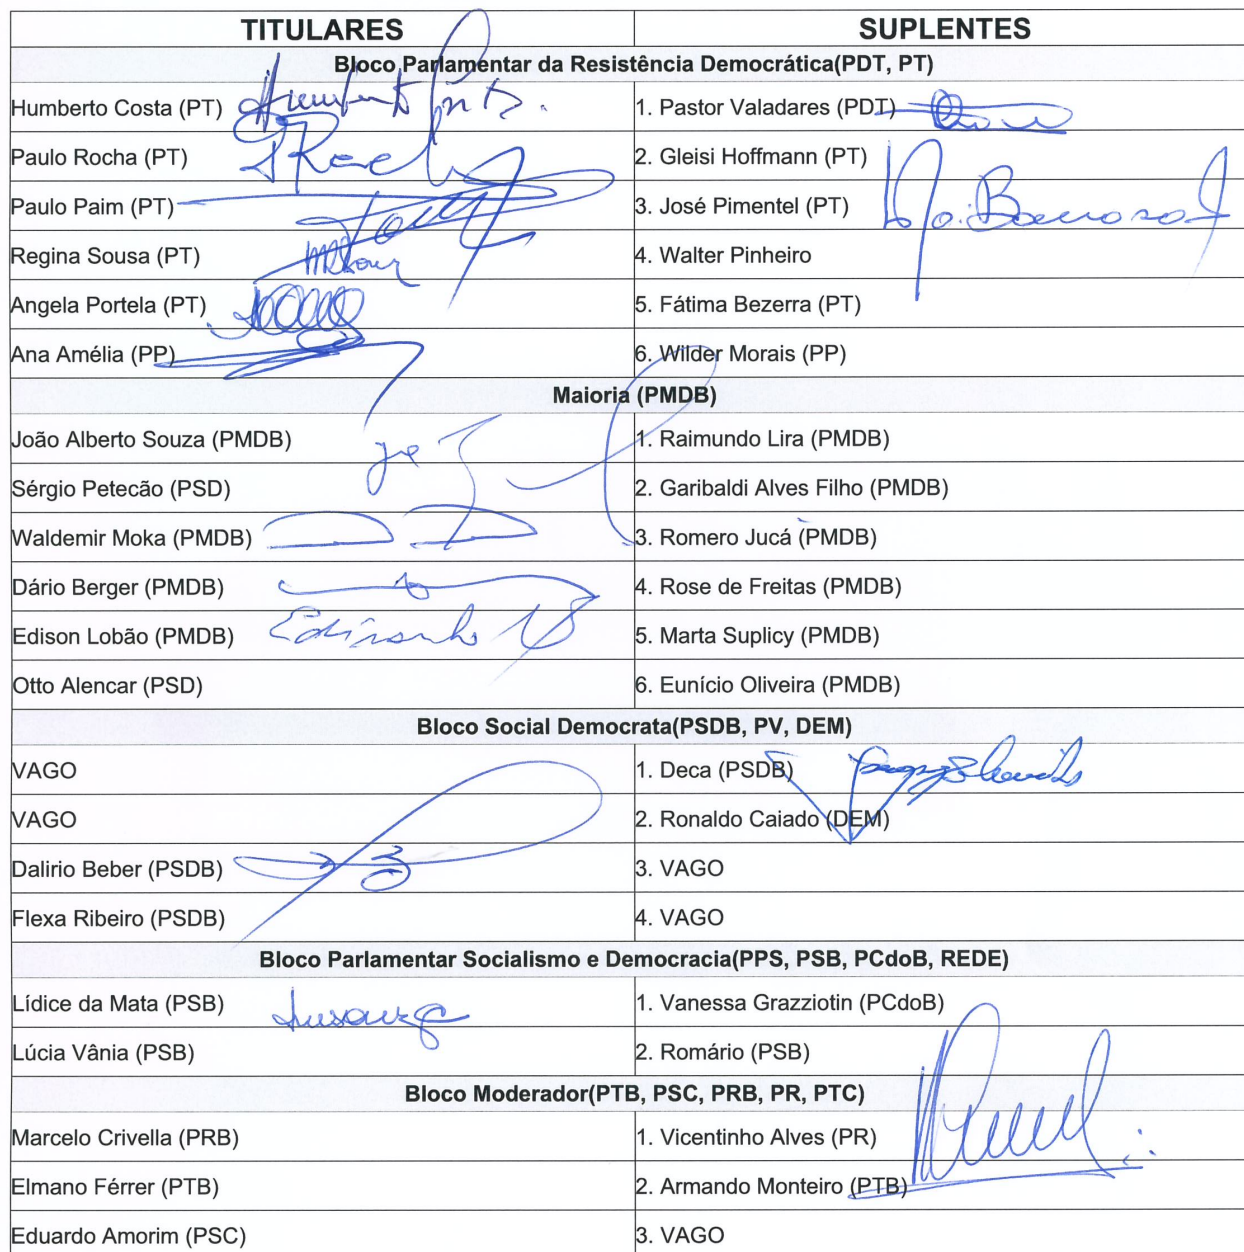 TITULARES SUPLENTES
Bloco Parlamentar da Resistência Democrática(PDT, PT)
Humberto Costa (PT) 1. Pastor Valadares (PDT)
Paulo Rocha (PT) 2. Gleisi Hoffmann (PT)
Paulo Paim (PT) 3. José Pimentel (PT)
Regina Sousa (PT) 4. Walter Pinheiro
Angela Portela (PT) 5. Fátima Bezerra (PT)
Ana Amélia (PP) 6. Wilder Morais (PP)
Maioria (PMDB)
João Alberto Souza (PMDB) 1. Raimundo Lira (PMDB)
Sérgio Petecão (PSD) 2. Garibaldi Alves Filho (PMDB)
Waldemir Moka (PMDB) 3. Romero Jucá (PMDB)
Dário Berger (PMDB) 4. Rose de Freitas (PMDB)
Edison Lobão (PMDB) 5. Marta Suplicy (PMDB)
Otto Alencar (PSD) 6. Eunício Oliveira (PMDB)
Bloco Social Democrata(PSDB, PV, DEM)
VAGO 1. Deca (PSDB)
VAGO 2. Ronaldo Caiado (DEM)
Dalirio Beber (PSDB) 3. VAGO
Flexa Ribeiro (PSDB) 4. VAGO
Bloco Parlamentar Socialismo e Democracia(PPS, PSB, PCdoB, REDE)
Lídice da Mata (PSB) 1. Vanessa Grazziotin (PCdoB)
Lúcia Vânia (PSB) 2. Romário (PSB)
Bloco Moderador(PTB, PSC, PRB, PR, PTC)
Marcelo Crivella (PRB) 1. Vicentinho Alves (PR)
Elmano Férrer (PTB) 2. Armando Monteiro (PTB)
Eduardo Amorim (PSC) 3. VAGO